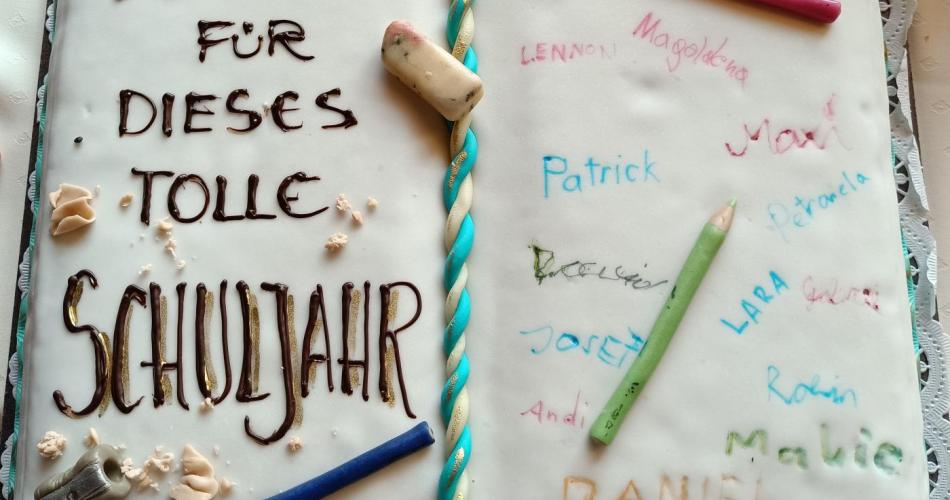 FÜR
DIESES
TOLLE
SCHULJAHR
LENNON
Magdalena
Patrick
Petronela
LARA
JOSEPH
Robin
Andi
DANIEL